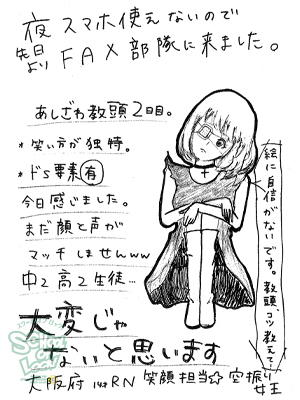 夜スマホ使えないので
先日より FAX部隊に来ました。
あしざわ教頭2日目。
*笑い方が独特。
*ドS要素有
今日感じました。
まだ顔と声が
マッチしませんww
中2高2生徒…
大変じゃ
ないと思います
大阪府 14才 RN 笑顔担当☆空振り女王
絵に自信がないです。教頭、コツ教えて!